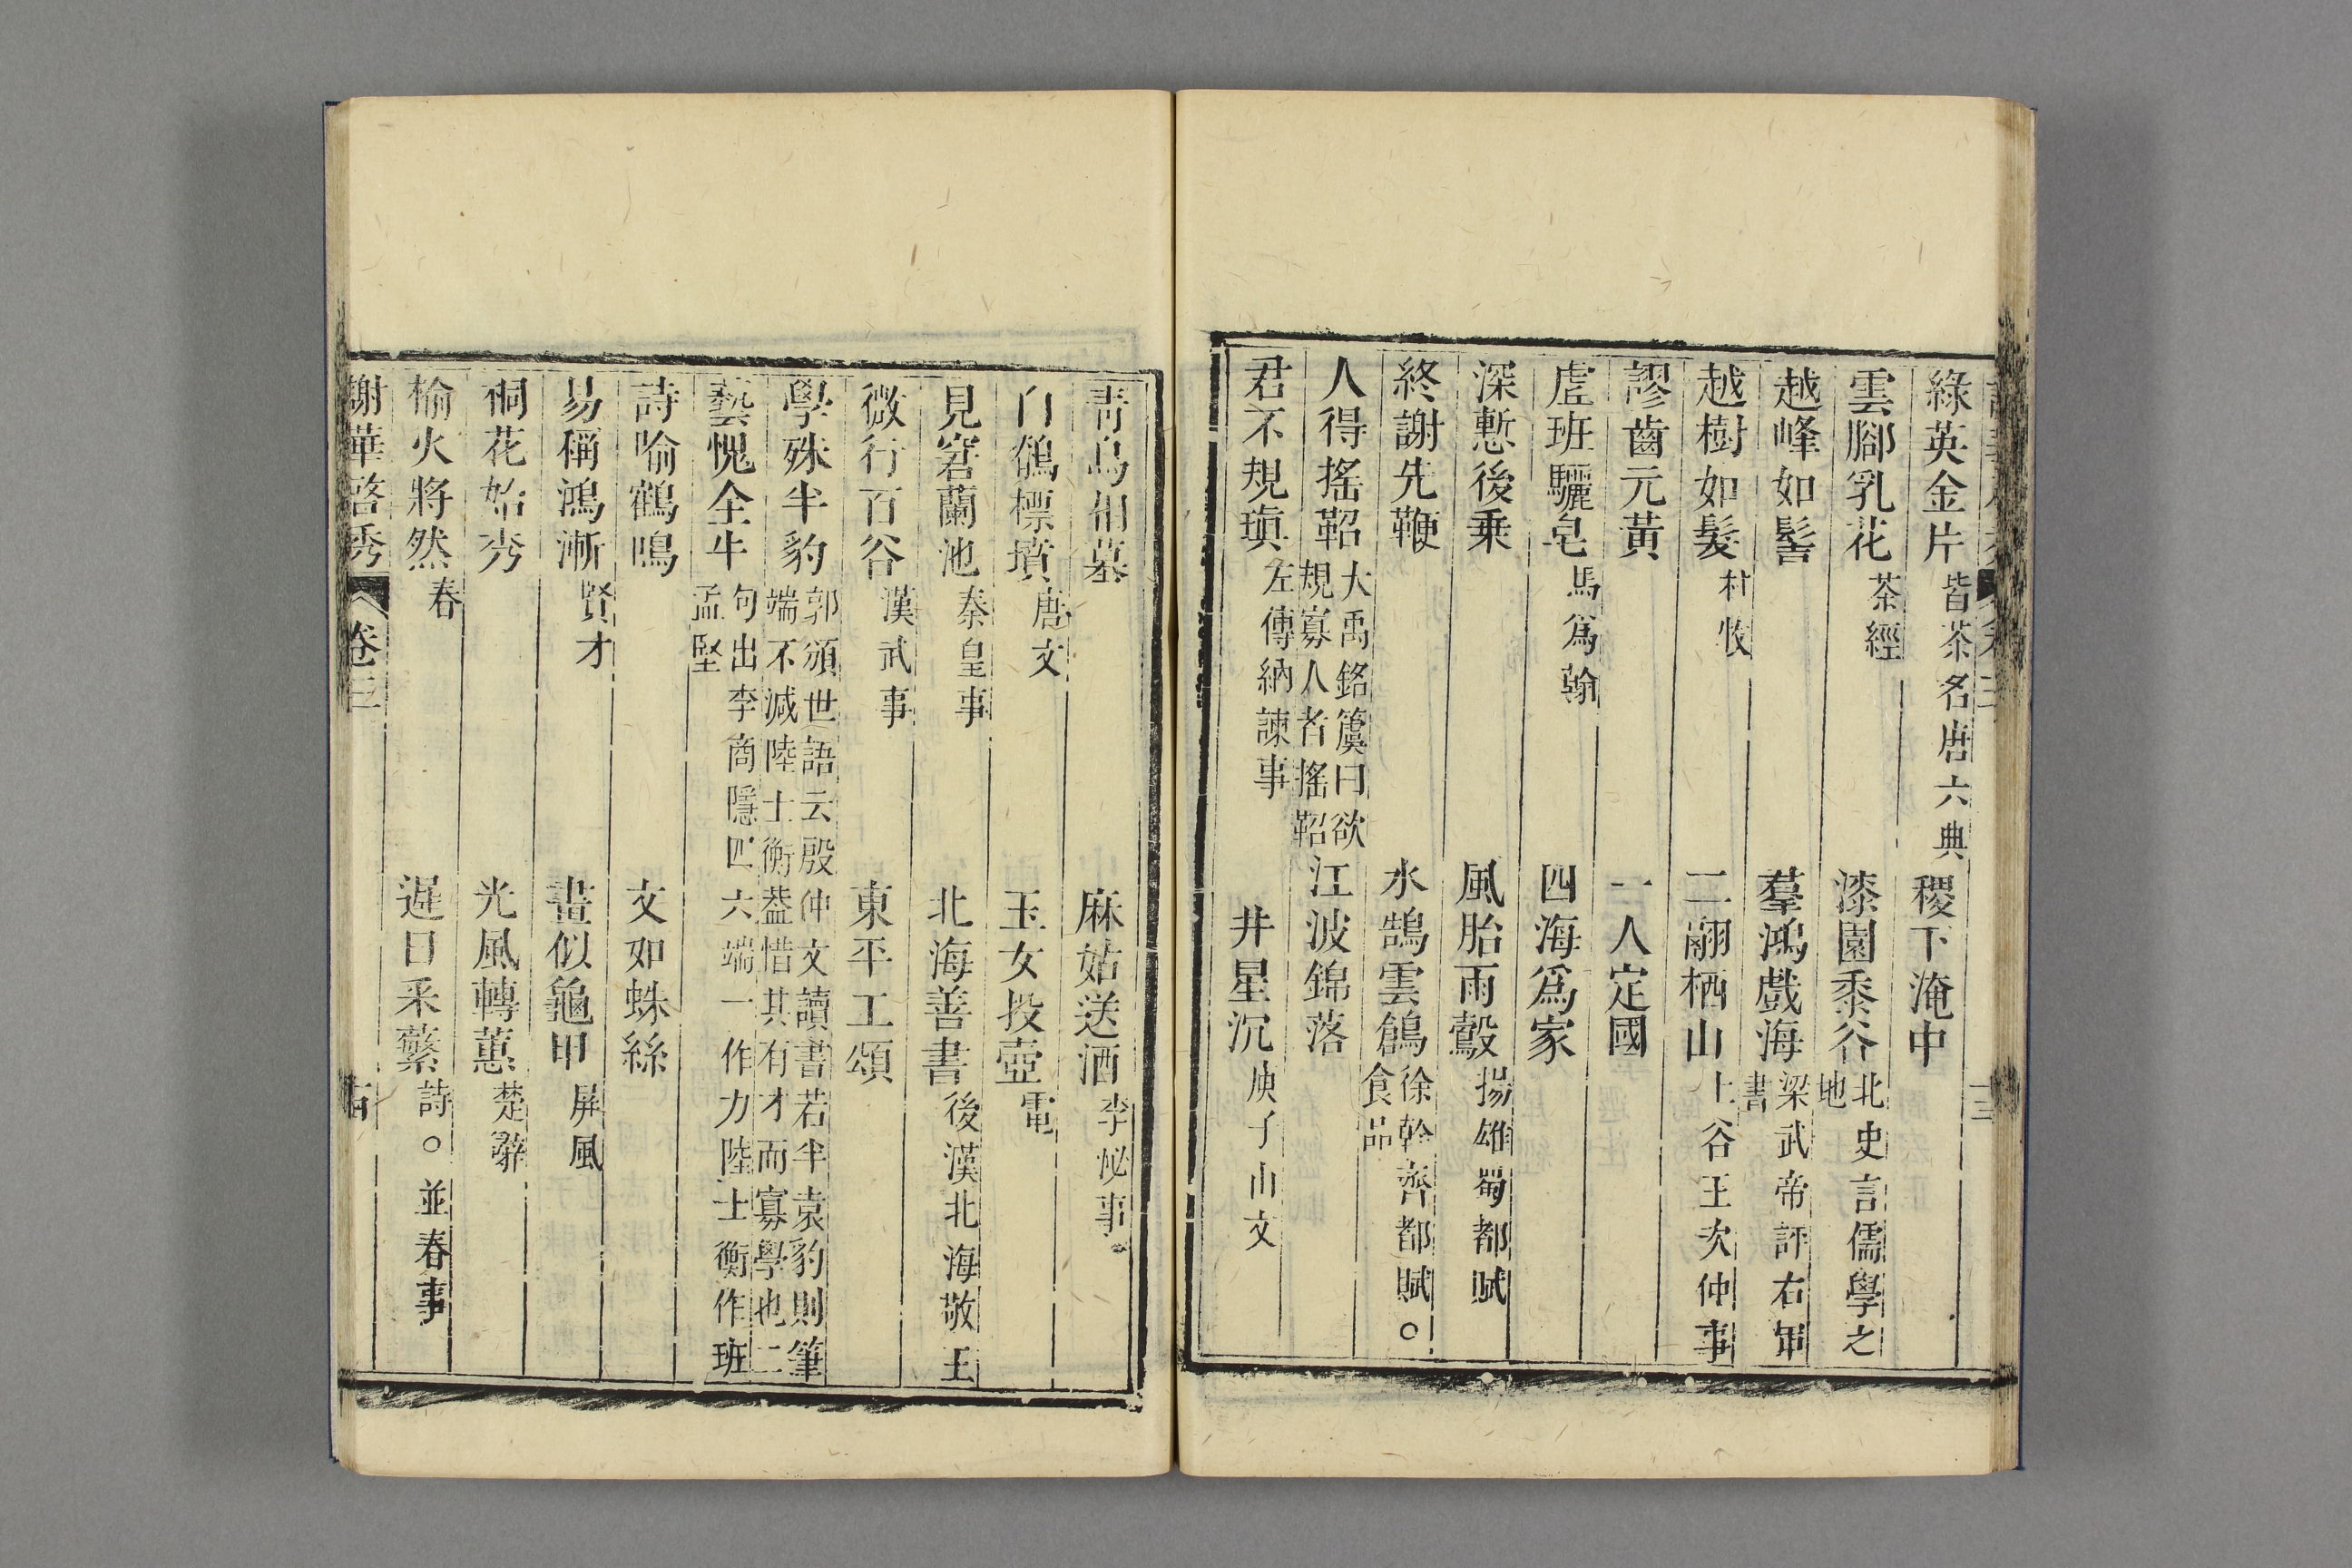 綠英金片 皆茶名唐六典 稷下淹中
雲腳乳花 茶經 漆園黍谷 北史言儒學之地
越峰如髻 羣鴻戲海 梁武帝評右軍書
越樹如髮 杜牧 二翮栖山 上谷王次仲事
謬齒元黃 一人定國
虛班驪皂 馬爲翰 四海爲家
深慙後乗 風胎雨鷇 揚雄蜀都賦
終謝先鞭 水鵠雲鶬 徐幹齊都賦○食品
人得搖鞀 大禹銘簴曰欲規寡人者搖鞀 江波錦落
君不規瑱 左傳納諫事 井星沉 庾子山文
青烏相墓 麻姑送酒 李泌事
白鶴標墳 唐文 玉女投壺 電
見窘蘭池 秦皇事 北海善書 後漢北海敬王
微行百谷 漢武事 東平工頌
學殊半豹 郭頒世語云殷仲文讀書若半袁豹則筆端不減陸士衡葢惜其有才而寡學也二
藝愧全牛 句出李商隱四六端一作力陸士衡作班孟堅
詩喻鶴鳴 文如蛛絲
易稱鴻漸 賢才 畫似龜甲 屏風
桐花始秀 光風轉蕙 楚辭
榆火將然 春 遲日采蘩 詩○並春事
謝華啓秀 卷三